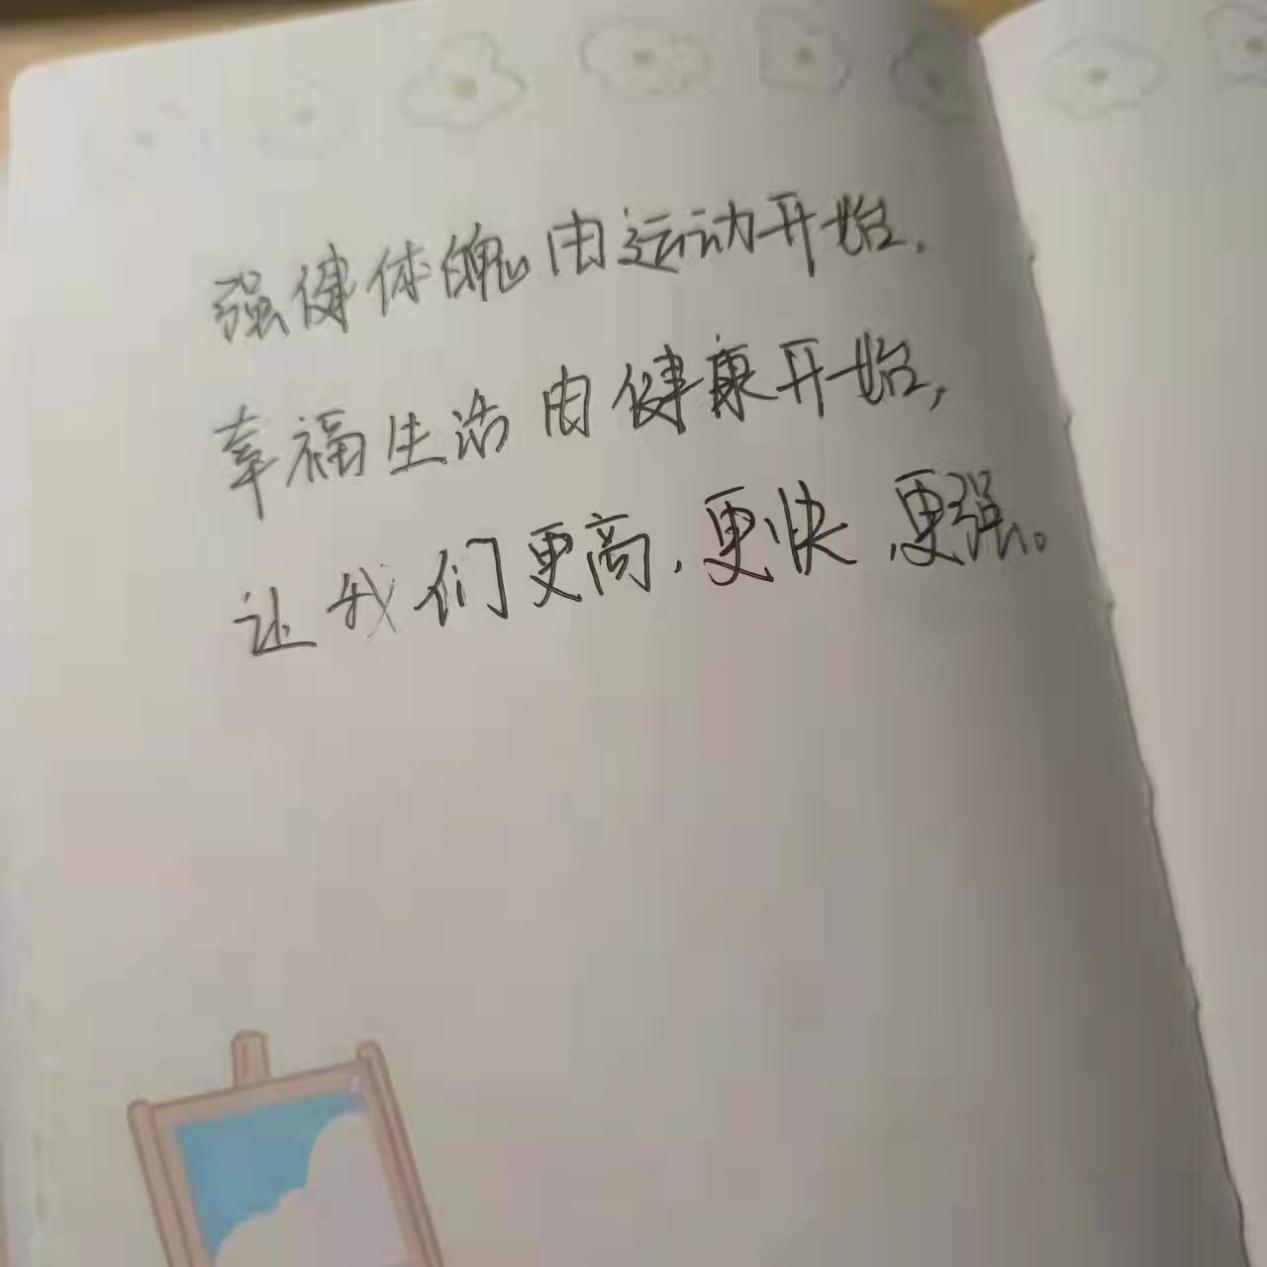 强健体魄由运动开始，
幸福生活由健康开始，
让我们更高，更快，更强。